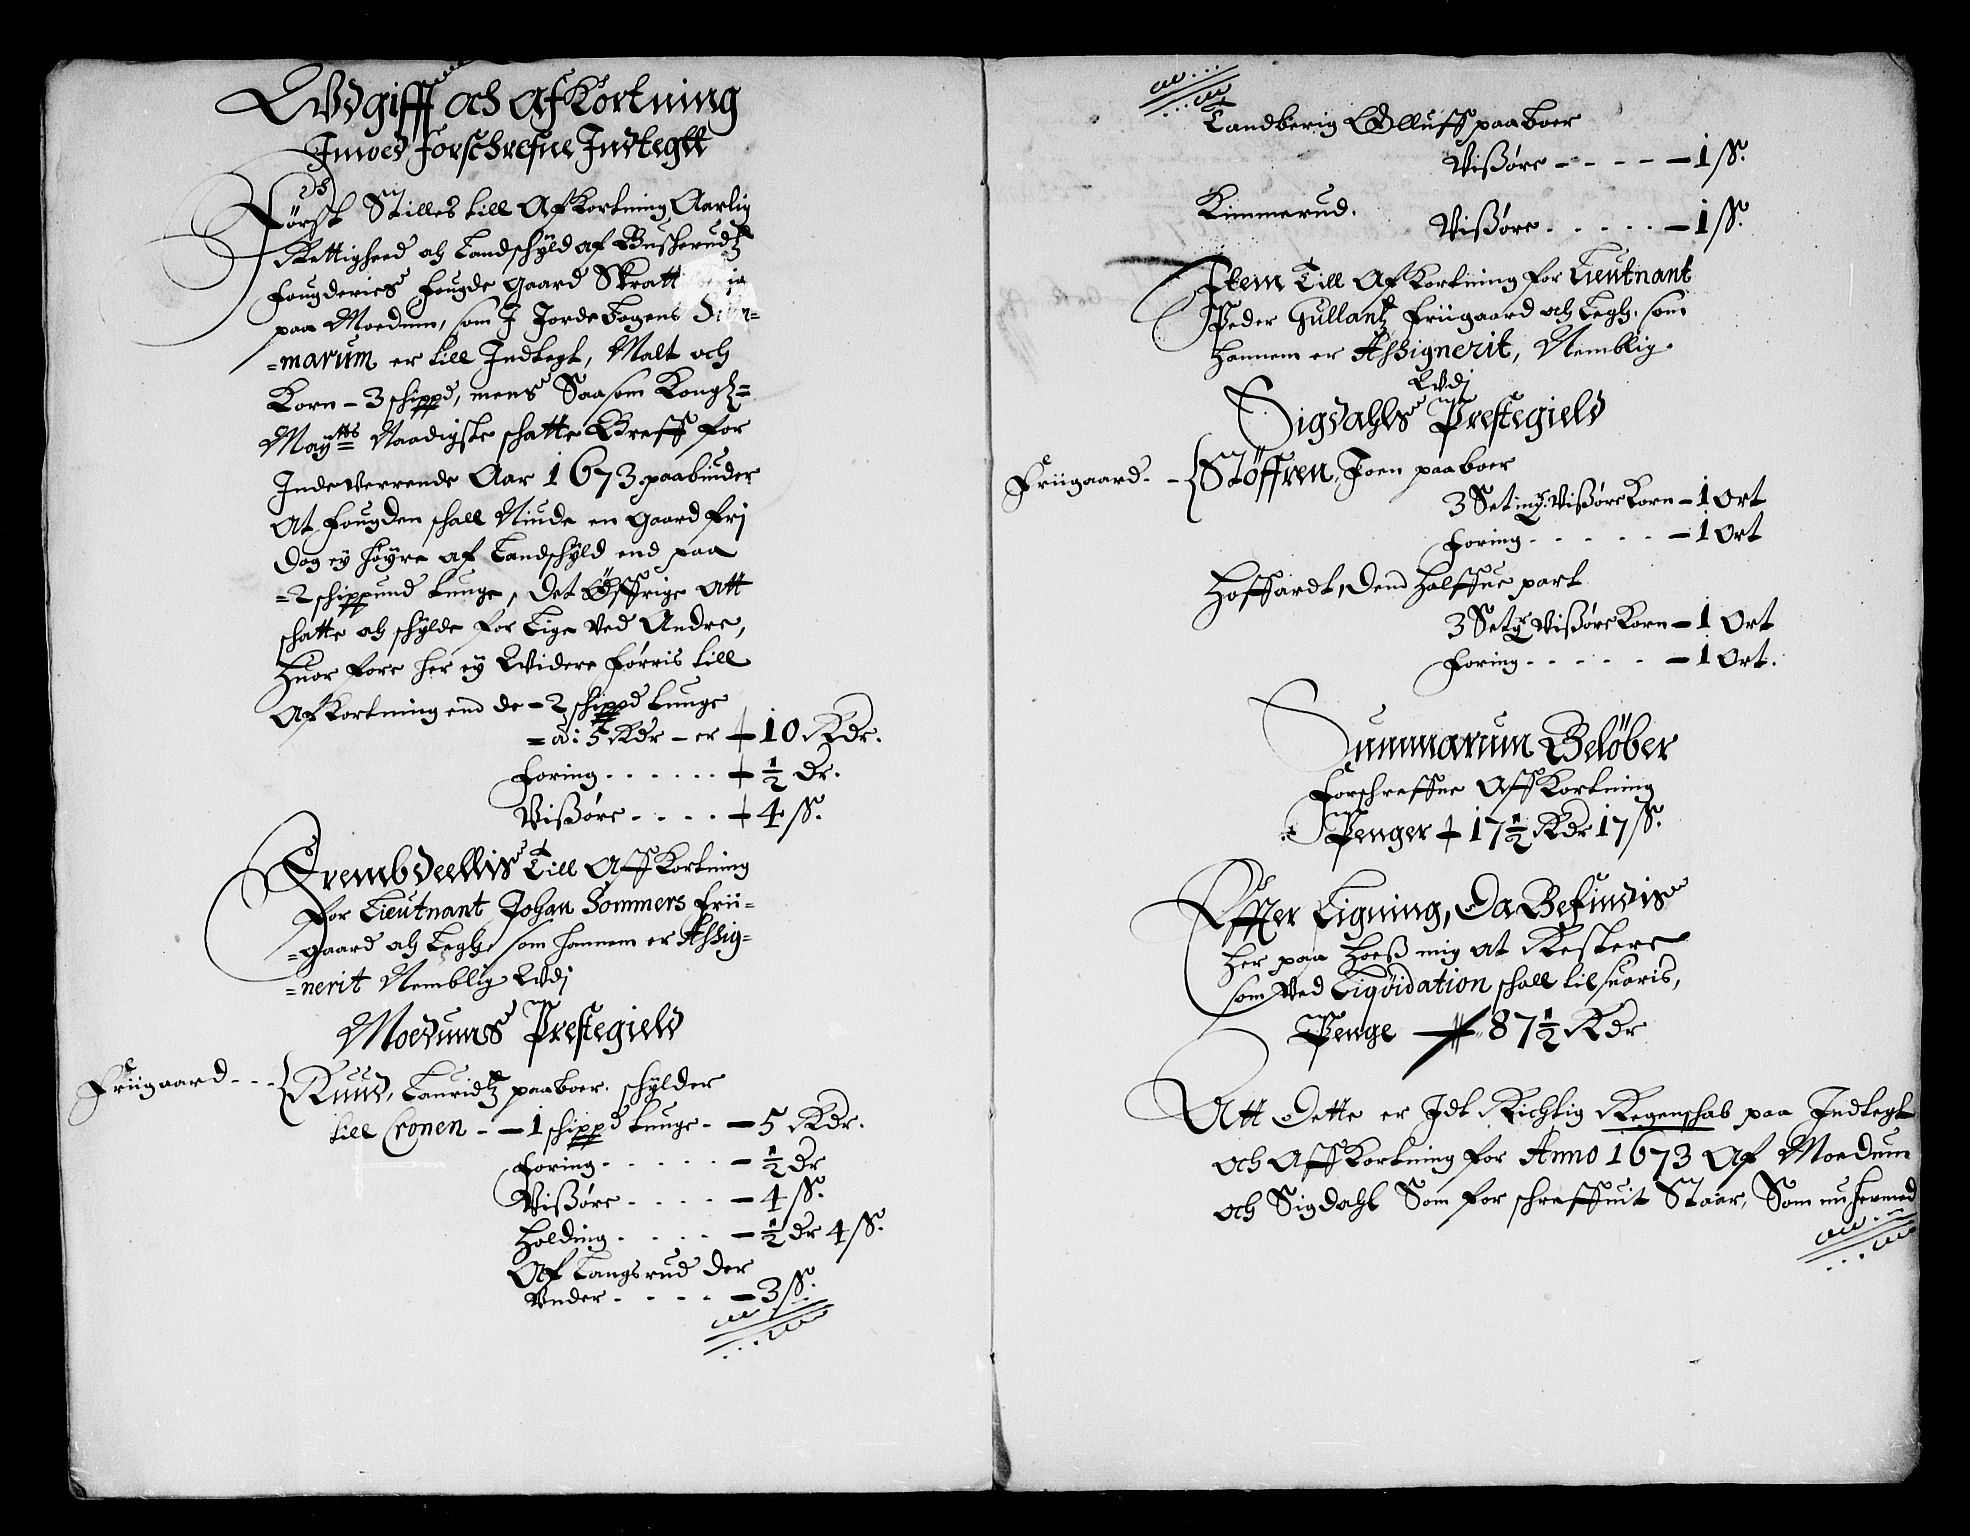 Wdgifft och AfKortning
Imoed Forschrefne Indtegtt
Först Stilles till AfKortning Aarlig
Rettigheed och Landschÿld af Buscherudtz
Fougderies Fougde gaard Skratt
paa Moedum, som J Jordebogens Sum-
=marum er till Indtegt, Malt och
Korn - 3 schippd, mens Saasom Kongl:
Maÿtts Naadigste schatte Breff for
Indeverrende Aar 1673 paabiuder
At Fougden schall Niude en gaard frj
dog eÿ höÿre af Landschÿld end paa
=2 schippund tunge, det Öffrige att
schatte och schÿlde for Lige ved Andre,
Huor fore her eÿ Widere förris till
AfKortning end de - 2 schippd tunge
= a: 5 Rdr - er - 10 Rdr.
Foring - - - - - - ½ dr.
Vißöre - - - - 4 ß.
Frembdeellis Till AffKortning
for Lieutnant Johan Sommers Frii-
=gaard och Legh, som hannem er Assig-
=nerit Nemblig Wdj
Moedums Prestegield
Friigaard - - - Ruud, Lauridtz paaboer, schÿlder
till Cronen - - 1 schippd tunge - - 5 Rdr.
Foring - - - - - ½ dr
Vißöre - - - - 4 ß.
Holding - - - - ½ dr 4 ß.
Af Langsrud der
Vnder - - - - 3 ß.
Landberig Olluff paaboer
Vißöre - - - - 1 ß.
Kimmerud.
Vißöre - - - - - 1 ß.
Item Till AfKortning for Lieutnant
Peder Gullantz Friigaard och Legh, som
hannem er Assignerit, Nemblig
Wdj
Sigdahls Prestegield
Friigaard - - Stöffren, Joen paaboer
3 Seting Vißöre Korn - 1 Ort
Foring - - - - - 1 Ort
Hoffardt, Dend halffue part
3 Setg Vißöre Korn - 1 Ort
Foring - - - - - 1 Ort.
Summarum Belöber
Forschreffne AffKortning
Penger - 17½ Rdr 17 ß.
Effter Ligning, Da Befindis
her paa hoeß mig at Restere
som Ved Liqvidation schall tilsuaris,
Penge - 87½ Rdr
Att Dette er Idt Richtig Regenschab paa Indtegt
och AffKortning for Anno 1673 Af Moedum
och Sigdahl Som for schreffuit Staar, Som nu hermed